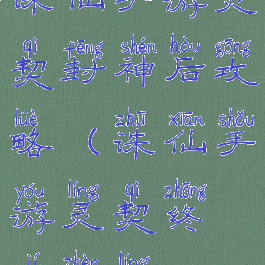 诛仙手游灵
qì fēng shén hòu gōng
契封神后攻
lüè zhū xiān shǒu
略（诛仙手
yóu líng qì zhōng
游灵契终
jí zhèn líng